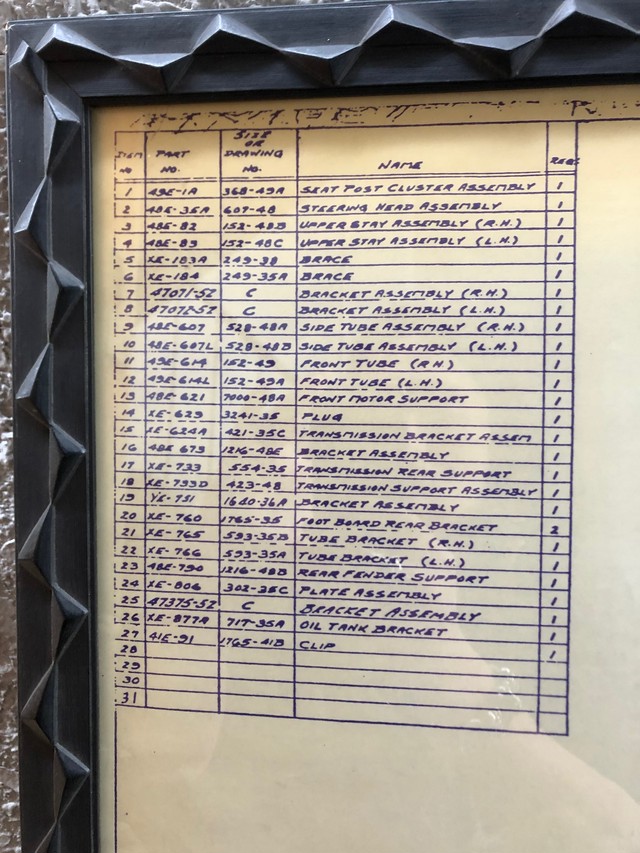 ITEM NO PART NO. SIZE OR DRAWING NO. NAME REQ.
1 49E-1A 368-49A SEAT POST CLUSTER ASSEMBLY 1
2 48E-35A 607-48 STEERING HEAD ASSEMBLY 1
3 48E-82 152-48B UPPER STAY ASSEMBLY (R.H.) 1
4 48E-83 152-48C UPPER STAY ASSEMBLY (L.H.) 1
5 XE-183A 249-38 BRACE 1
6 XE-184 249-35A BRACE 1
7 47071-52 C BRACKET ASSEMBLY (R.H.) 1
8 47072-52 C BRACKET ASSEMBLY (L.H.) 1
9 48E-607 528-48A SIDE TUBE ASSEMBLY (R.H.) 1
10 48E-607L 528-48B SIDE TUBE ASSEMBLY (L.H.) 1
11 49E-614 152-49 FRONT TUBE (R.H.) 1
12 49E-614L 152-49A FRONT TUBE (L.H.) 1
13 48E-621 7000-48A FRONT MOTOR SUPPORT 1
14 XE-629 3241-35 PLUG 1
15 XE-624A 421-35C TRANSMISSION BRACKET ASSEM 1
16 48E 673 1216-48E BRACKET ASSEMBLY 1
17 XE-733 554-35 TRANSMISSION REAR SUPPORT 1
18 XE-733D 423-48 TRANSMISSION SUPPORT ASSEMBLY 1
19 YE-731 1640-36A BRACKET ASSEMBLY 1
20 XE-760 1765-35 FOOT BOARD REAR BRACKET 2
21 XE-765 593-35B TUBE BRACKET (R.H.) 1
22 XE-766 593-35A TUBE BRACKET (L.H.) 1
23 48E-790 1216-48B REAR FENDER SUPPORT 1
24 XE-806 302-35C PLATE ASSEMBLY 1
25 47375-52 C BRACKET ASSEMBLY 1
26 XE-877A 717-35A OIL TANK BRACKET 1
27 41E-91 1765-41B CLIP 1
28
29
30
31